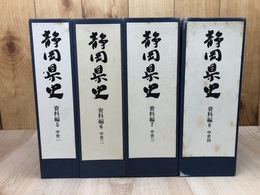 静岡県史
資料編5 中世一
静岡県史
資料編6 中世二
静岡県史
資料編7 中世三
静岡県史
資料編8 中世四